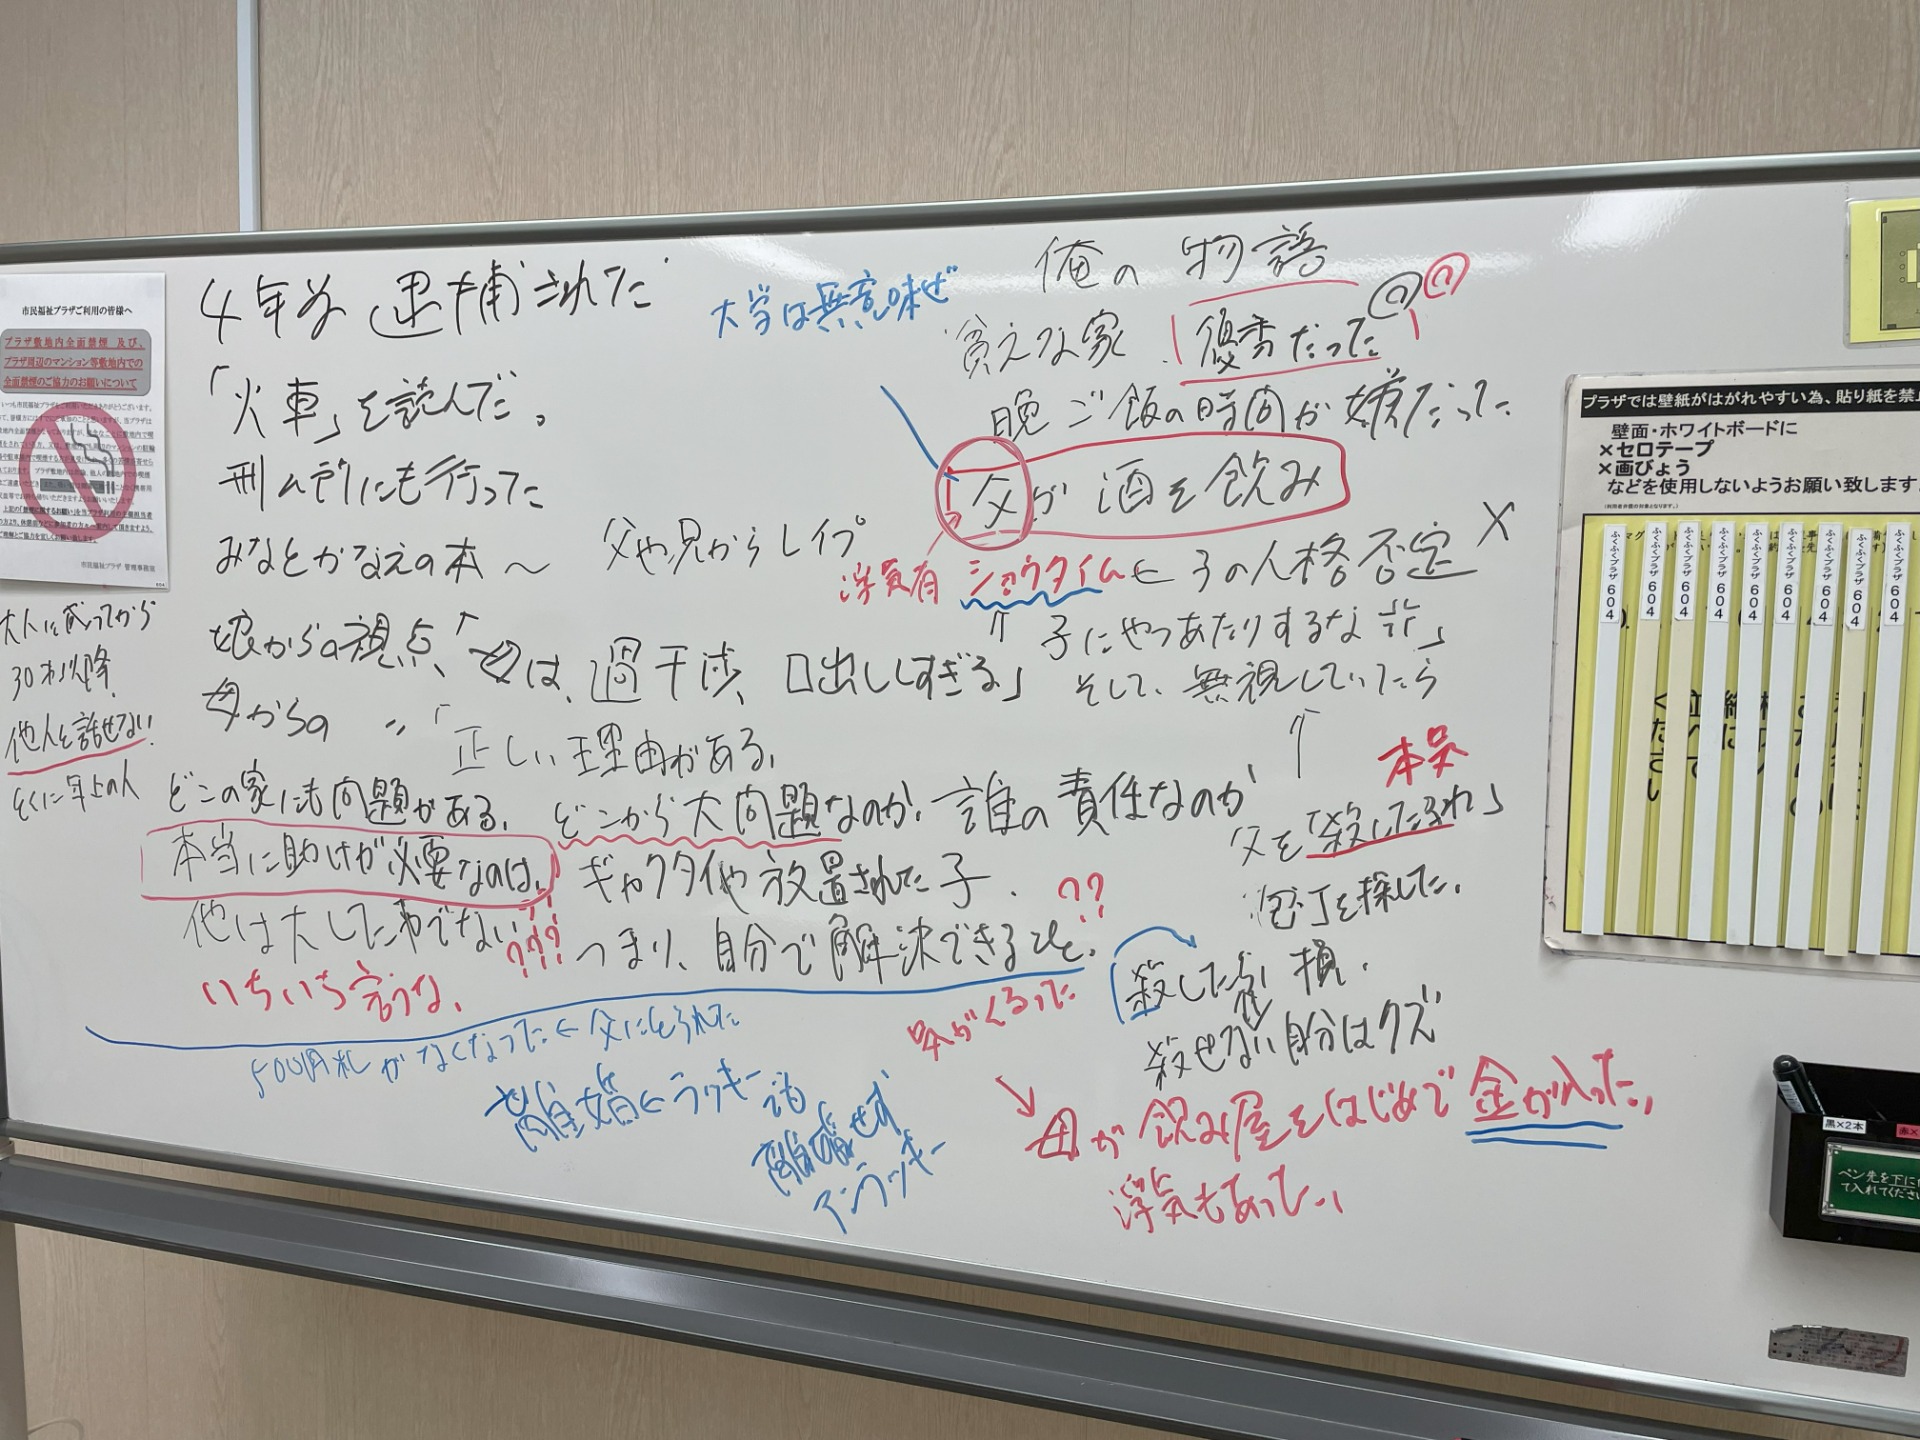 4年前 逮捕された
「火車」を読んだ。
刑ム所にも行った
みなとかなえの本～ 父や兄からレイプ
娘からの視点、「母は、過干渉、口出ししすぎる」
母からの 〃 「正しい理由がある。
どこの家にも問題がある。どこから大問題なのか。誰の責任なのか
本当に助けが必要なのは、ギャクタイや放置された子.
他は大した事でない ???
つまり、自分で解決できるひと。??
いちいち言うな。
500円札がなくなった ← 父にとられた
離婚 ← ラッキー
でも
離婚せず
アンラッキー
大人に成ってから
30才以降
他人と話せない
とくに年上の人
大学は無意味ぜ
俺の物語
貧乏な家. 優秀だった
晩ご飯の時間が嫌だった
父が酒を飲み
浮気有 ショウタイム ← 子の人格否定
子にやつあたりするな
そして、無視していたら
本気
父を「殺したふれ」
包丁を探した.
殺したら損.
殺せない自分はクズ
気がくるった
母が飲み屋をはじめて金が入った.
浮気もあった.
市民福祉プラザご利用の皆様へ
プラザ敷地内全面禁煙 及び、
プラザ周辺のマンション等敷地内での
全面禁煙のご協力のお願いについて
市民福祉プラザ 管理事務所
プラザでは壁紙がはがれやすい為、貼り紙を禁止
壁面・ホワイトボードに
×セロテープ
×画びょう
などを使用しないようお願い致します
ふくふくプラザ 604
ふくふくプラザ 604
ふくふくプラザ 604
ふくふくプラザ 604
ふくふくプラザ 604
ふくふくプラザ 604
ふくふくプラザ 604
ふくふくプラザ 604
ふくふくプラザ 604
黒×2本
ペン先を下に
て入れてください